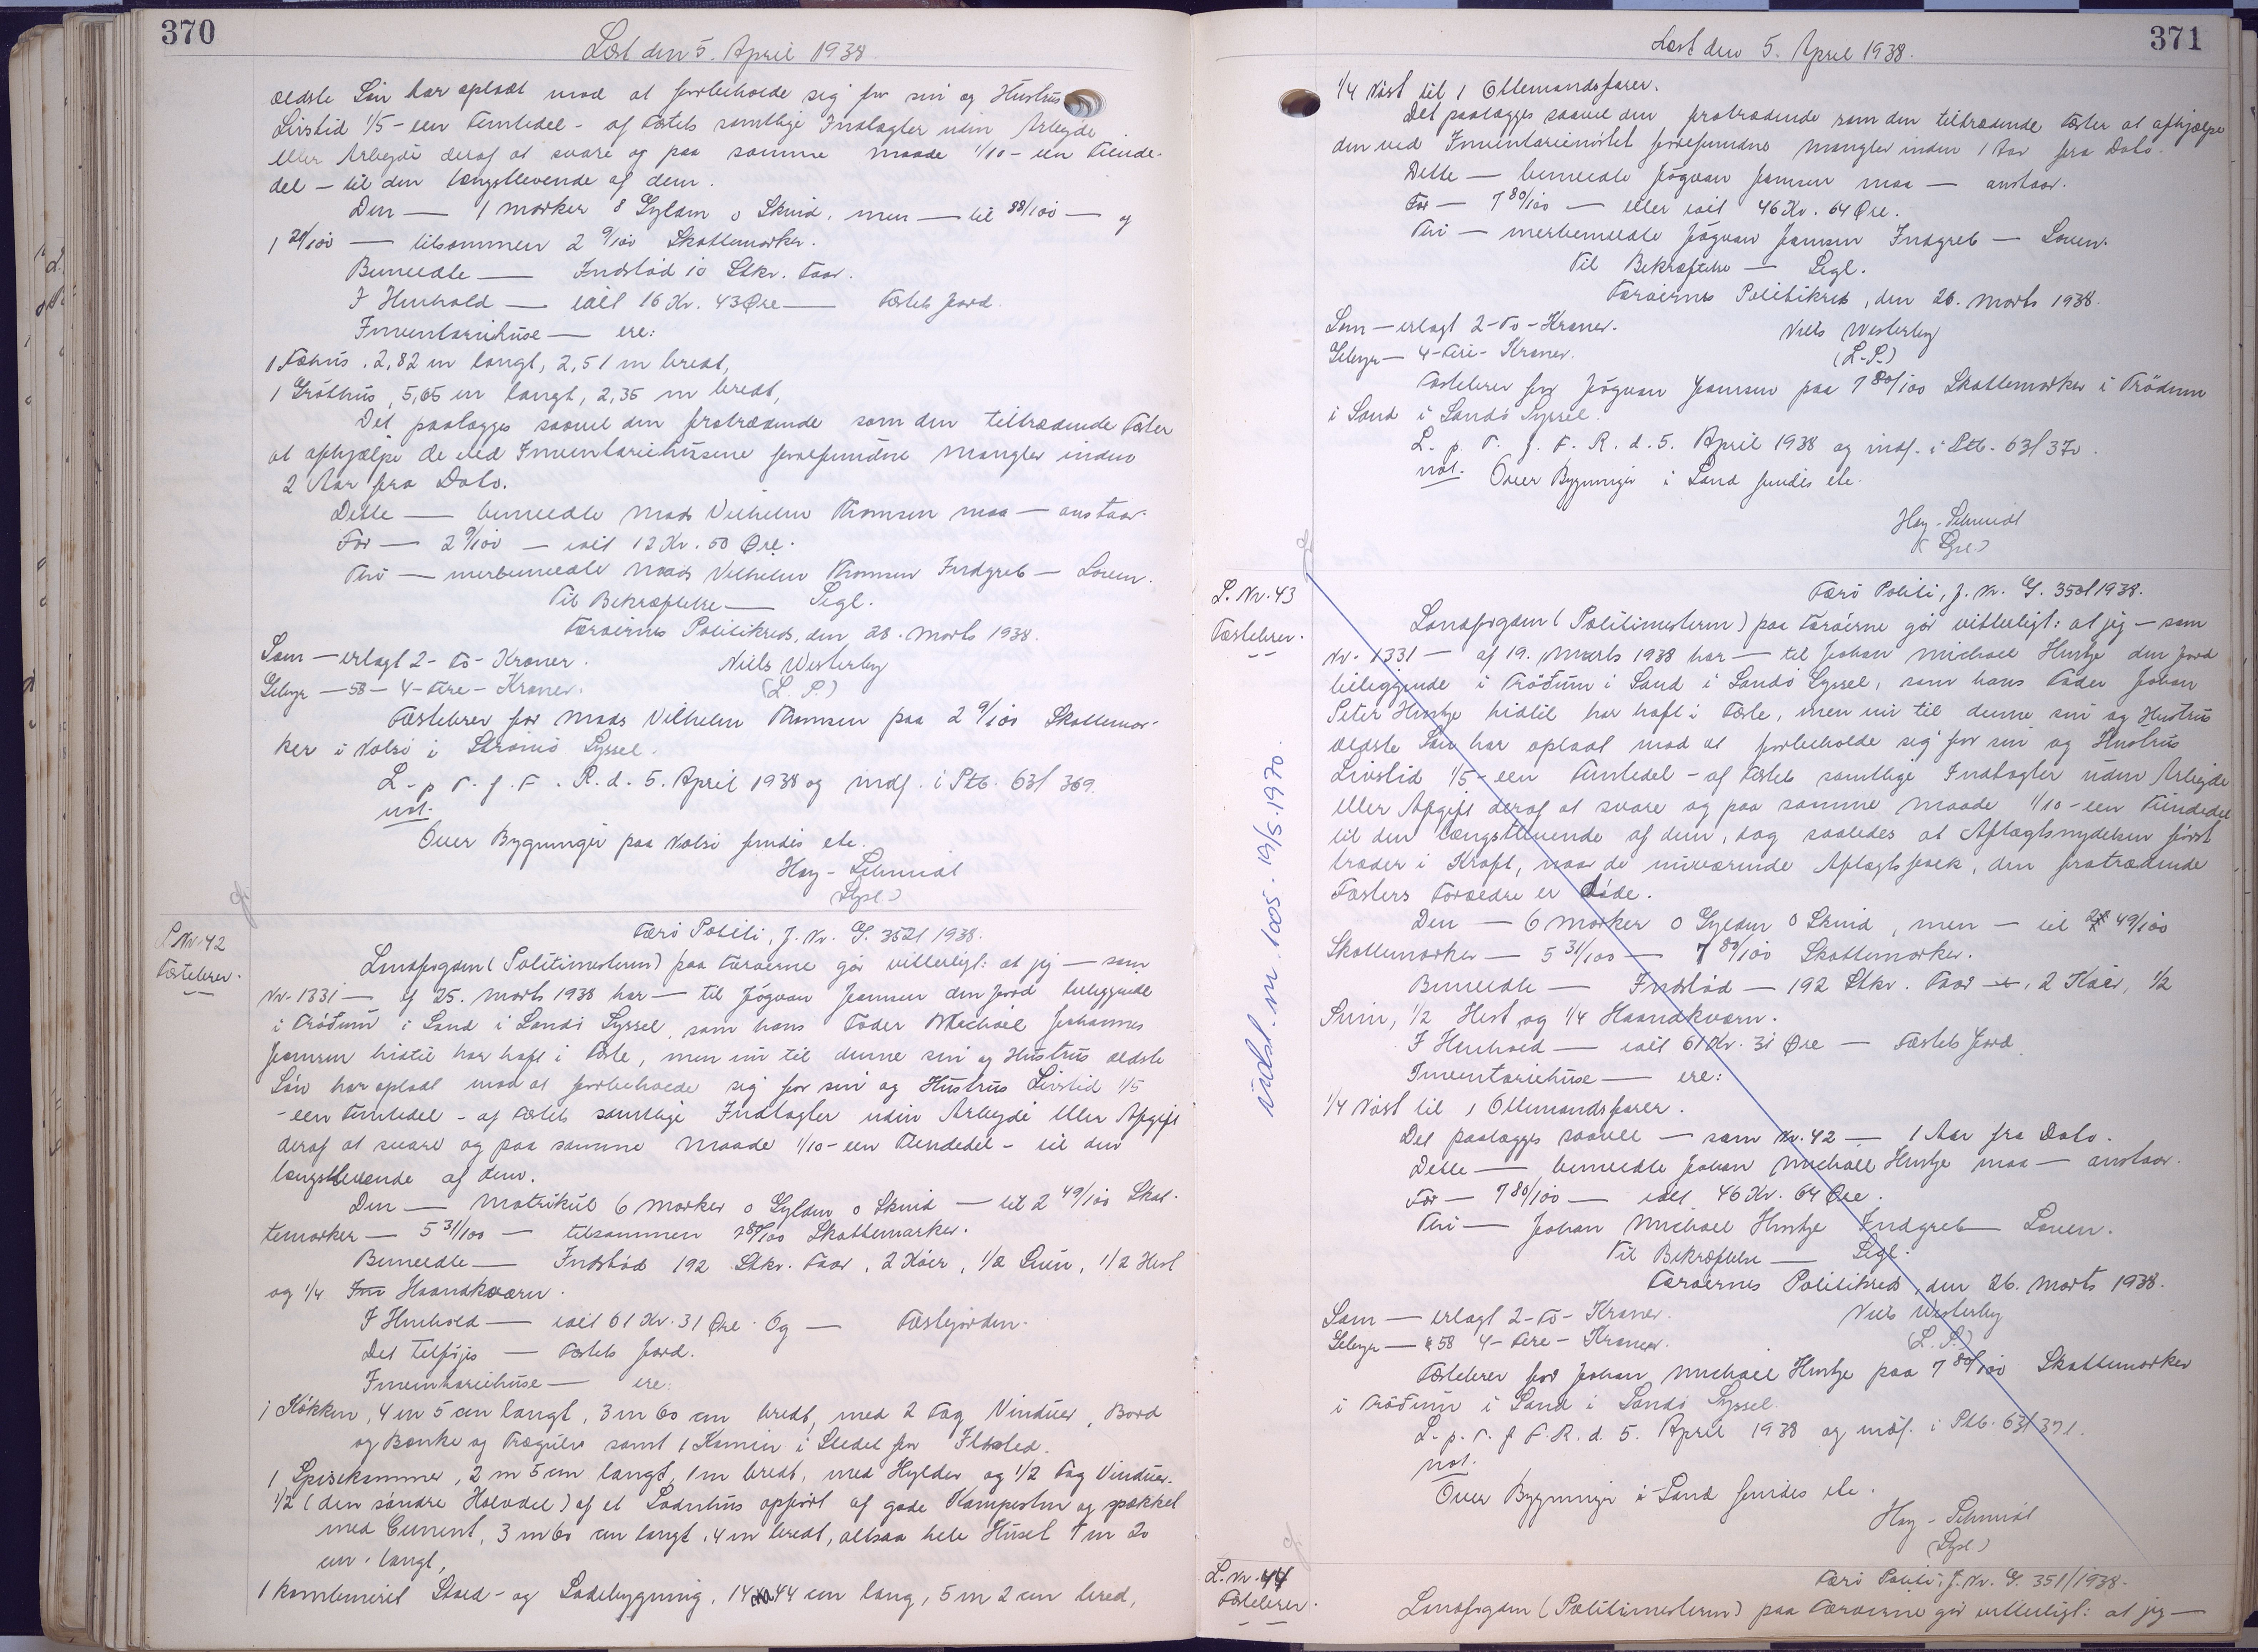 370
Læst den 5. April 1938.
ældste Søn har opladt mod at forbeholde sig for sin og Hustrus
Livstid 1/5 - een Femtedel - af Fæstets samtlige Indtægter uden Arbejde
eller Arbejde deraf at svare og paa samme Maade 1/10 - een Tiende-
del - til den længstlevende af dem.
Den — 1 Marker 8 Gylden 0 Skind, men — til 88/100 — og
1 21/100 — tilsammen 2 9/100 Skattemarker.
Bemeldte — Indstød 10 Stkr. Faar.
I Henhold — ialt 16 Kr. 43 Øre — Fæstets Jord.
Inventariehuse — ere:
1 Fæhus, 2,82 m langt, 2,51 m bredt,
1 Gróthus, 5,65 m langt, 2,35 m bredt,
Det paalægges saavel den fratrædende som den tiltrædende Fæster
at afhjælpe de ved Inventariehusene forefundne Mangler inden
2 Aar fra Dato.
Dette — bemeldte Mads Vilhelm Thomsen maa — anstaar.
For — 2 9/100 — ialt 12 Kr. 50 Øre.
Thi — merbemeldte Mads Vilhelm Thomsen Indgreb — Loven.
Til Bekræftelse — Segl.
Færøernes Politikreds, den 28. Marts 1938.
Som — erlagt 2 - To - Kroner.
Niels Westerby
Gebyr — 58 - 4 - Fire - Kroner.
(L. S.)
Fæstebrev for Mads Vilhelm Thomsen paa 2 9/100 Skattemar-
ker i Nolsø i Strømø Syssel.
L. p. T. f. F. R. d. 5. April 1938 og indf. i Ptb. 63/369.
not.
Over Bygninger paa Nolsø findes ete.
Høy-Schmidt
L. Nr. 42
Fæstebrev.
Færø Politi, J. Nr. G. 352/1938.
Landfogden (Politimesteren) paa Færøerne gør vitterligt: at jeg — som
Nr. 1331 — af 25. Marts 1938 har — til Jógvan Jensen den Jord beliggende
i Tródum i Sand i Sandø Syssel, som hans Fader Michael Johannes
Jensen hidtil har haft i Fæste, men nu til denne sin og Hustrus ældste
Søn har opladt mod at forbeholde sig for sin og Hustrus Livstid 1/5
- een Femtedel - af Fæstets samtlige Indtægter uden Arbejde eller Afgift
deraf at svare og paa samme Maade 1/10 - een Tiendedel - til den
længstlevende af dem.
Den — Matrikul 6 Marker 0 Gylden 0 Skind — til 2 49/100 Skat-
temarker — 5 31/100 — tilsammen 7 80/100 Skattemarker.
Bemeldte — Indstød 192 Stkr. Faar, 2 Køer, 1/2 Svin, 1/2 Hest
og 1/4 Haandkværn.
I Henhold — ialt 61 Kr. 31 Øre. Og — Fæstejorden.
Det tilføjes — Fæstets Jord.
Inventariehuse — ere:
1 Køkken, 4 m 5 cm langt, 3 m 60 cm bredt, med 2 Fag Vinduer, Bord
og Bænke og Trægulv samt 1 Kamin i Stedet for Ildsted.
1 Spisekammer, 2 m 5 cm langt, 1 m bredt, med Hylder og 1/2 Fag Vinduer.
1/2 (den søndre Halvdel) af et Ladehus opført af gode Kampesten og spækket
med Cement, 3 m 60 cm langt, 4 m bredt, altsaa hele Huset 7 m 20
cm. langt,
1 kombineret Stald- og Ladebygning, 14 m 44 cm lang, 5 m 2 cm bred,
371
Læst den 5. April 1938.
1/4 Nøst til 1 Ottemandsfarer.
Det paalægges saavel den fratrædende som den tiltrædende Fæster at afhjælpe
den ved Inventarienøstet forefundne Mangler inden 1 Aar fra Dato.
Dette — bemeldte Jógvan Jensen maa — anstaar.
For — 7 80/100 — eller ialt 46 Kr. 64 Øre.
Thi — merbemeldte Jógvan Jensen Indgreb — Loven.
Til Bekræftelse — Segl.
Færøernes Politikreds, den 26. Marts 1938.
Som — erlagt 2 - To - Kroner.
Niels Westerby
Gebyr — 4 - Fire - Kroner.
(L. S.)
Fæstebrev for Jógvan Jensen paa 7 80/100 Skattemarker i Tródum
i Sand i Sandø Syssel.
L. p. T. f. F. R. d. 5. April 1938 og indf. i Ptb. 63/370.
not. Over Bygninger i Sand findes ete.
Høy-Schmidt
L. Nr. 43
Fæstebrev.
Færø Politi, J. Nr. G. 350/1938.
Landfogden (Politimesteren) paa Færøerne gør vitterligt: at jeg — som
Nr. 1331 — af 19. Marts 1938 har — til Johan Michael Hentze den Jord
beliggende i Tródum i Sand i Sandø Syssel, som hans Fader Johan
Peter Hentze hidtil har haft i Fæste, men nu til denne sin og Hustrus
ældste Søn har opladt mod at forbeholde sig for sin og Hustrus
Livstid 1/5 - een Femtedel - af Fæstets samtlige Indtægter uden Arbejde
eller Afgift deraf at svare og paa samme Maade 1/10 - een Tiendedel
til den længstlevende af dem, dog saaledes at Aftægtsnydelsen først
træder i Kraft, naar de nuværende Aftægtsfolk, den fratrædende
Fæsters Forældre er døde.
Den — 6 Marker 0 Gylden 0 Skind, men — til 2 49/100
Skattemarker — 5 31/100 — 7 80/100 Skattemarker.
Bemeldte — Indstød — 192 Stkr. Faar, 2 Køer, 1/2
Svin, 1/2 Hest og 1/4 Haandkværn.
I Henhold — ialt 61 Kr. 31 Øre — Fæstets Jord.
Inventariehuse — ere:
1/4 Nøst til 1 Ottemandsfarer.
Det paalægges saavel — som Nr. 42 — 1 Aar fra Dato.
Dette — bemeldte Johan Michael Hentze maa — anstaar.
For — 7 80/100 — ialt 46 Kr. 64 Øre.
Thi — Johan Michael Hentze Indgreb — Loven.
Til Bekræftelse — Segl.
Færøernes Politikreds, den 26. Marts 1938.
Som — erlagt 2 - To - Kroner.
Niels Westerby
Gebyr — 58 4 - Fire - Kroner.
(L. S.)
Fæstebrev for Johan Michael Hentze paa 7 80/100 Skattemarker
i Tródum i Sand i Sandø Syssel.
L. p. T. f. F. R. d. 5. April 1938 og indf. i Ptb. 63/371.
not.
Over Bygninger i Sand findes ete.
Høy-Schmidt
udsl. nr. 1005. 19/5.1970.
L. Nr. 44
Fæstebrev.
Færø Politi, J. Nr. G. 351/1938.
Landfogden (Politimesteren) paa Færøerne gør vitterligt: at jeg —